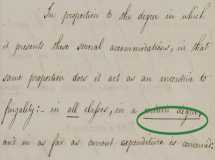 In proportion to the degree in which
it presents these several accommodations, in that
same proportion does it act as an incentive to
frugality:- in all classes, in a certain degree,
and in as far as amount expenditure is concerned: